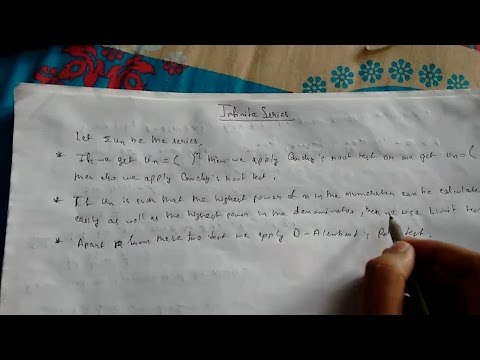 Infinite Series
Let Σun be the series.
* If we get un = ( )n then we apply Cauchy's root test or we get un = (
then also we apply Cauchy's root test.
* If un is such that the highest power of n in the numerator can be calculated
easily as well as the highest power in the denominator, then we use Limit test
* Apart from these two test we apply D-Alembert's test.